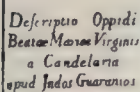 Descriptio Oppidi
Beatæ Mariæ Virginis
a Candelaria
apud Indos Guaranios